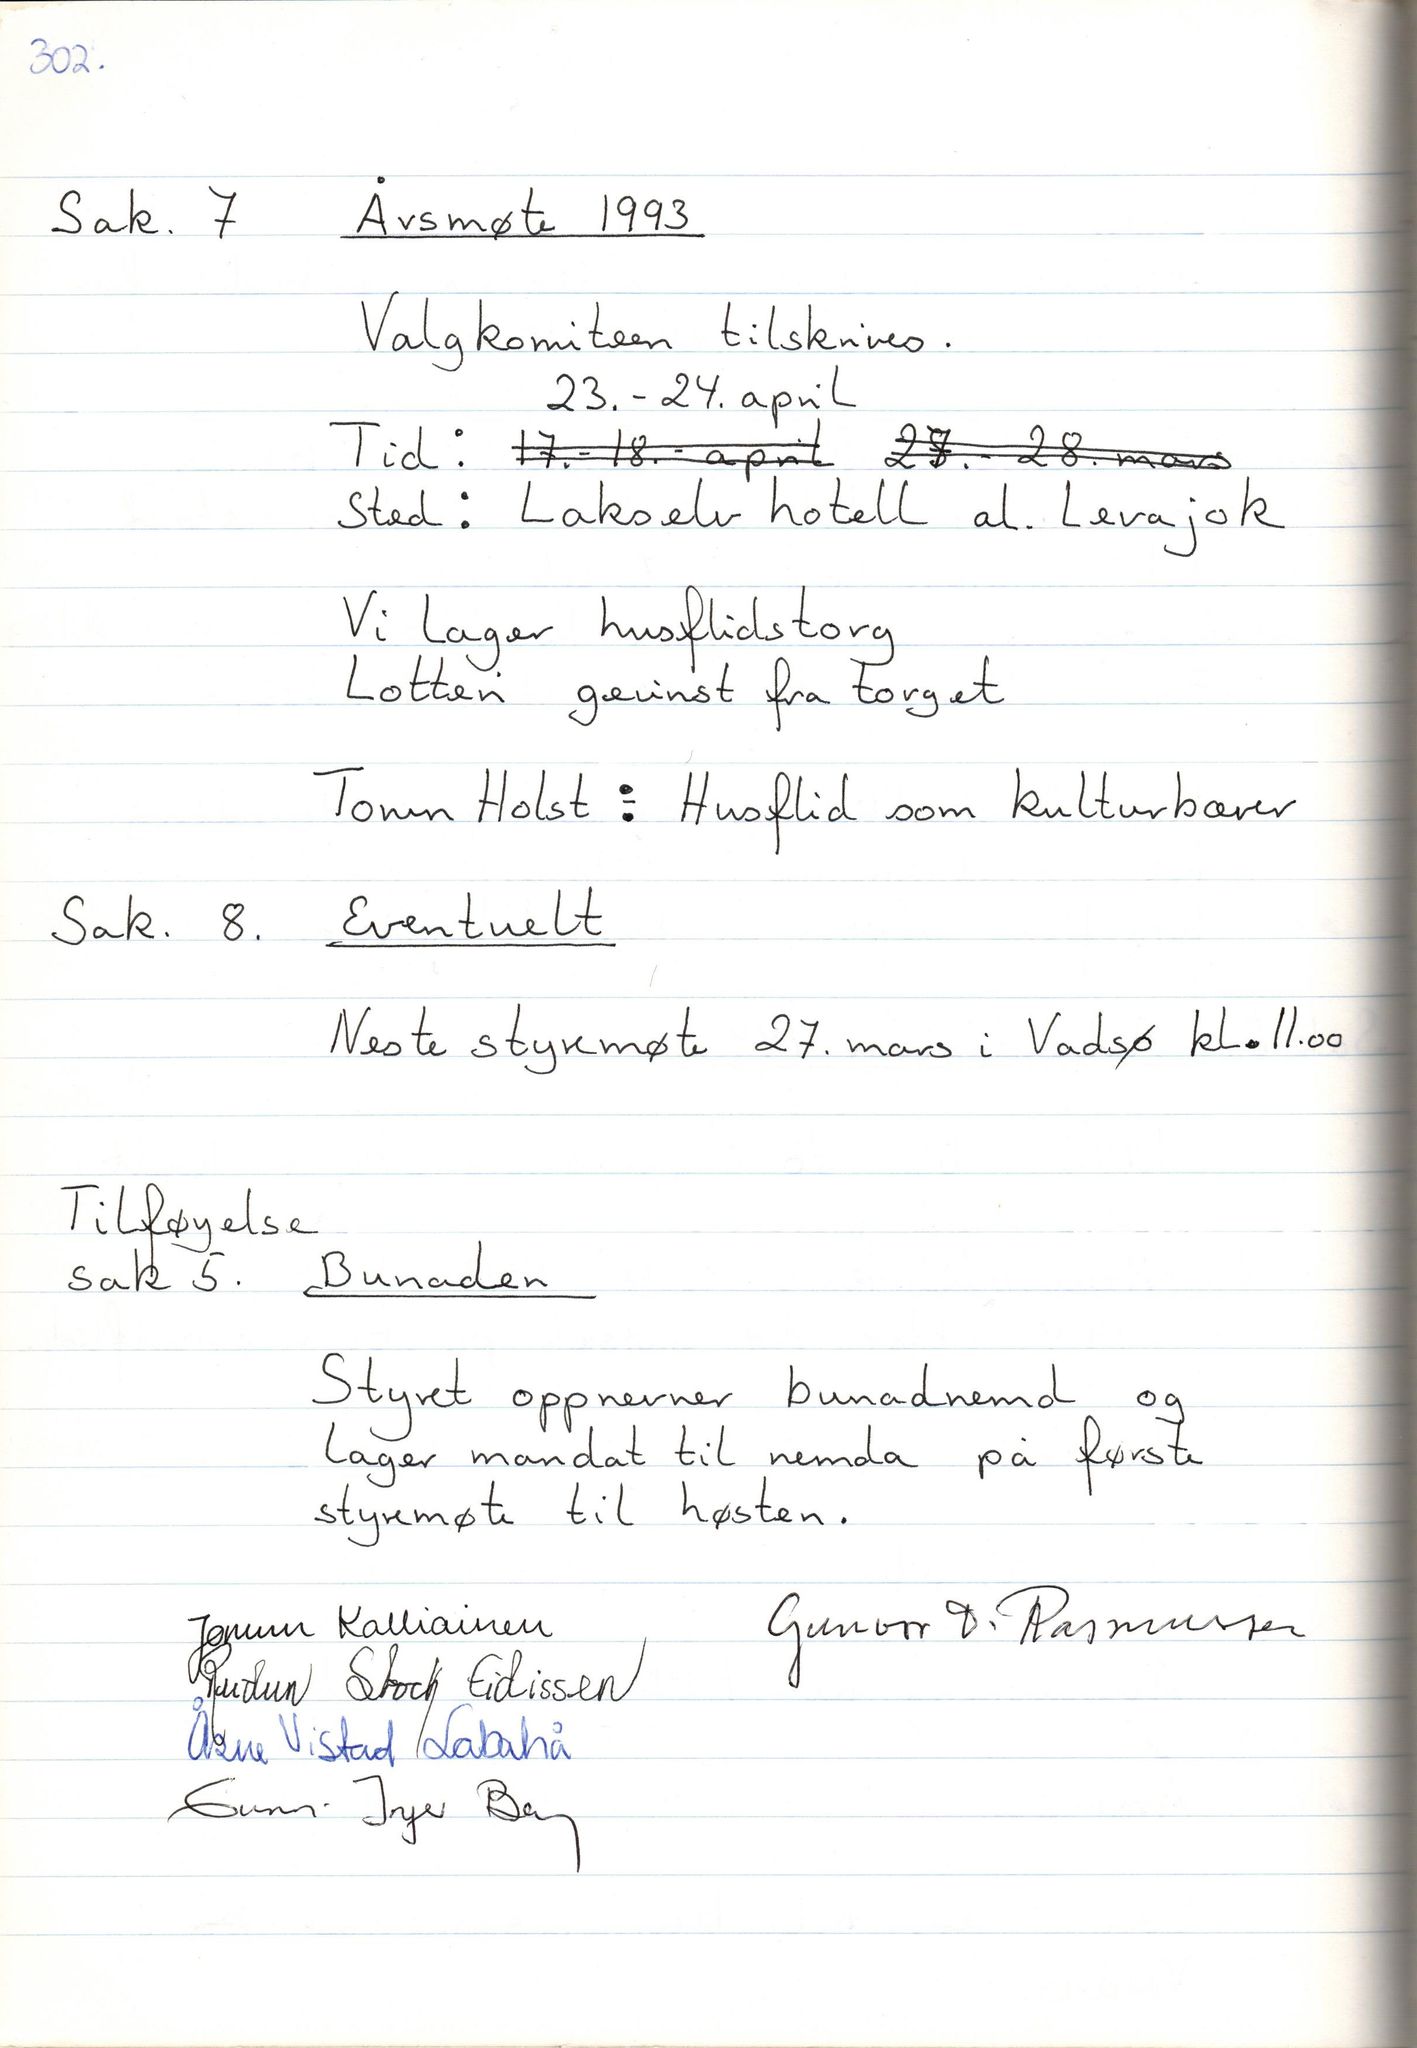 302.
Sak. 7 Årsmøte 1993
Valgkomiteen tilskrives.
23.-24. april
Tid: 17.-18.- april 27.- 28. mars
Sted: Lakselv hotell al. Levajok
Vi lager husflidstorg
Lotteri gevinst fra torget
Tonen Holst: Husflid som kulturbærer
Sak. 8. Eventuelt
Neste styremøte 27. mars i Vadsø kl. 11.00
Tilføyelse
sak 5. Bunaden
Styret oppnevner bunadnemd og
lager mandat til nemda på første
styremøte til høsten.
Jorunn Kalliainen Gunvor D. Rasmussen
Stock Eidissen
Vistad Labahå
Inger